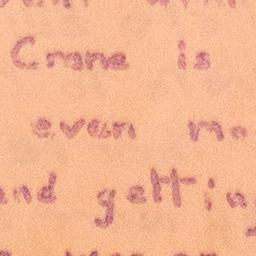 Crane is
even mo
and gettin